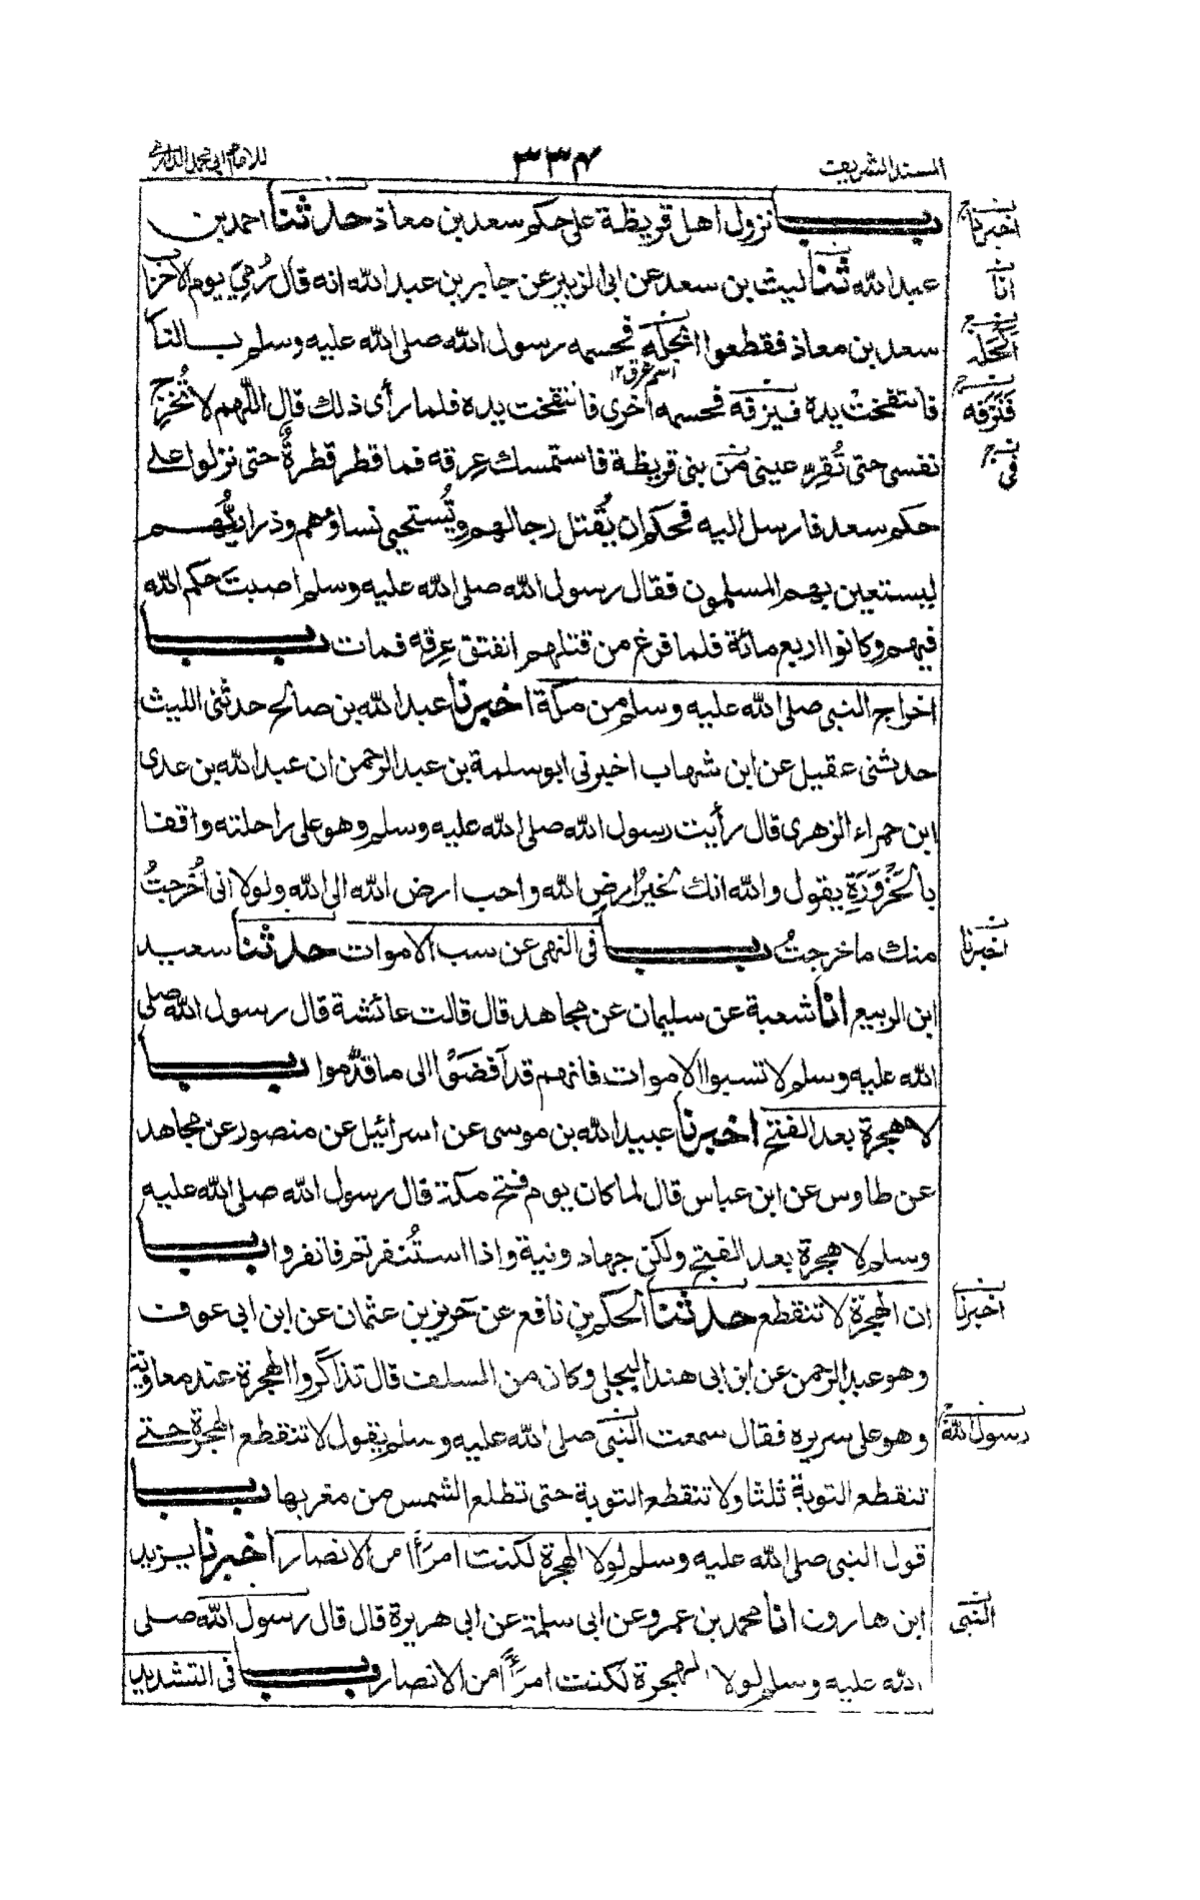 المسند الشريف ٣٣٤ للامام ابى محمد الدارمى
باب نزول اهل قريظة على حكم سعد بن معاذ حدثنا احمد بن
عبد الله ثنا ليث بن سعد عن ابى الزبير عن جابر بن عبد الله انه قال رُمِيَ يوم الاحزاب
سعد بن معاذ فقطعوا ابجله فحسمه رسول الله صلى الله عليه وسلم بالنار
اسم عرق ١٢
فانتفخت يده فينزفه فحسمه اخرى فانتفخت يده فلما رأى ذلك قال اللهم لا تُخرج
نفسى حتى تُقِرّ عينى من بنى قريظة فاستمسك عِرقه فما قطر قطرةٌ حتى نزلوا على
حكم سعد فارسل اليه فحكم ان يُقتل رجالهم ويُستحيى نساؤهم وذراريُّهم
ليستعين بهم المسلمون فقال رسول الله صلى الله عليه وسلم اصبتَ حكم الله
فيهم وكانوا اربع مائة فلما فرغ من قتلهم انفتق عِرقه فمات باب
اخراج النبى صلى الله عليه وسلم من مكة اخبرنا عبد الله بن صالح حدثنى الليث
حدثنى عقيل عن ابن شهاب اخبرنى ابو سلمة بن عبد الرحمن ان عبد الله بن عدى
ابن حمراء الزهرى قال رأيت رسول الله صلى الله عليه وسلم وهو على راحلته واقفا
بالحَزْوَرَةِ يقول والله انك لخيرُ ارضِ الله واحب ارض الله الى الله ولولا انى اُخرجتُ
منك ما خرجتُ باب فى النهى عن سب الاموات حدثنا سعيد
ابن الربيع انا شعبة عن سليمان عن مجاهد قال قالت عائشة قال رسول الله صلى
الله عليه وسلم لا تسبوا الاموات فانهم قد اَفضَوْا الى ما قدَّموا باب
لا هجرة بعد الفتح اخبرنا عبيد الله بن موسى عن اسرائيل عن منصور عن مجاهد
عن طاوس عن ابن عباس قال لما كان يوم فتح مكة قال رسول الله صلى الله عليه
وسلم لا هجرة بعد الفتح ولكن جهاد ونية واذا استُنفرتم فانفروا باب
ان الهجرة لا تنقطع حدثنا الحكم بن نافع عن حريز بن عثمان عن ابن ابى عوف
وهو عبد الرحمن عن ابن ابى هند البجلى وكان من السلف قال تذاكروا الهجرة عند معاوية
وهو على سريره فقال سمعت النبى صلى الله عليه وسلم يقول لا تنقطع الهجرة حتى
تنقطع التوبة ثلثا ولا تنقطع التوبة حتى تطلع الشمس من مغربها باب
قول النبى صلى الله عليه وسلم لولا الهجرة لكنت امرَأ من الانصار اخبرنا يزيد
ابن هارون انا محمد بن عمرو عن ابى سلمة عن ابى هريرة قال قال رسول الله صلى
الله عليه وسلم لولا الهجرة لكنت امرَأً من الانصار باب فى التشديد
اخبرنا
انا
اكحله
فنزفه
فى
اخبرنا
اخبرنا
رسول الله
النبى